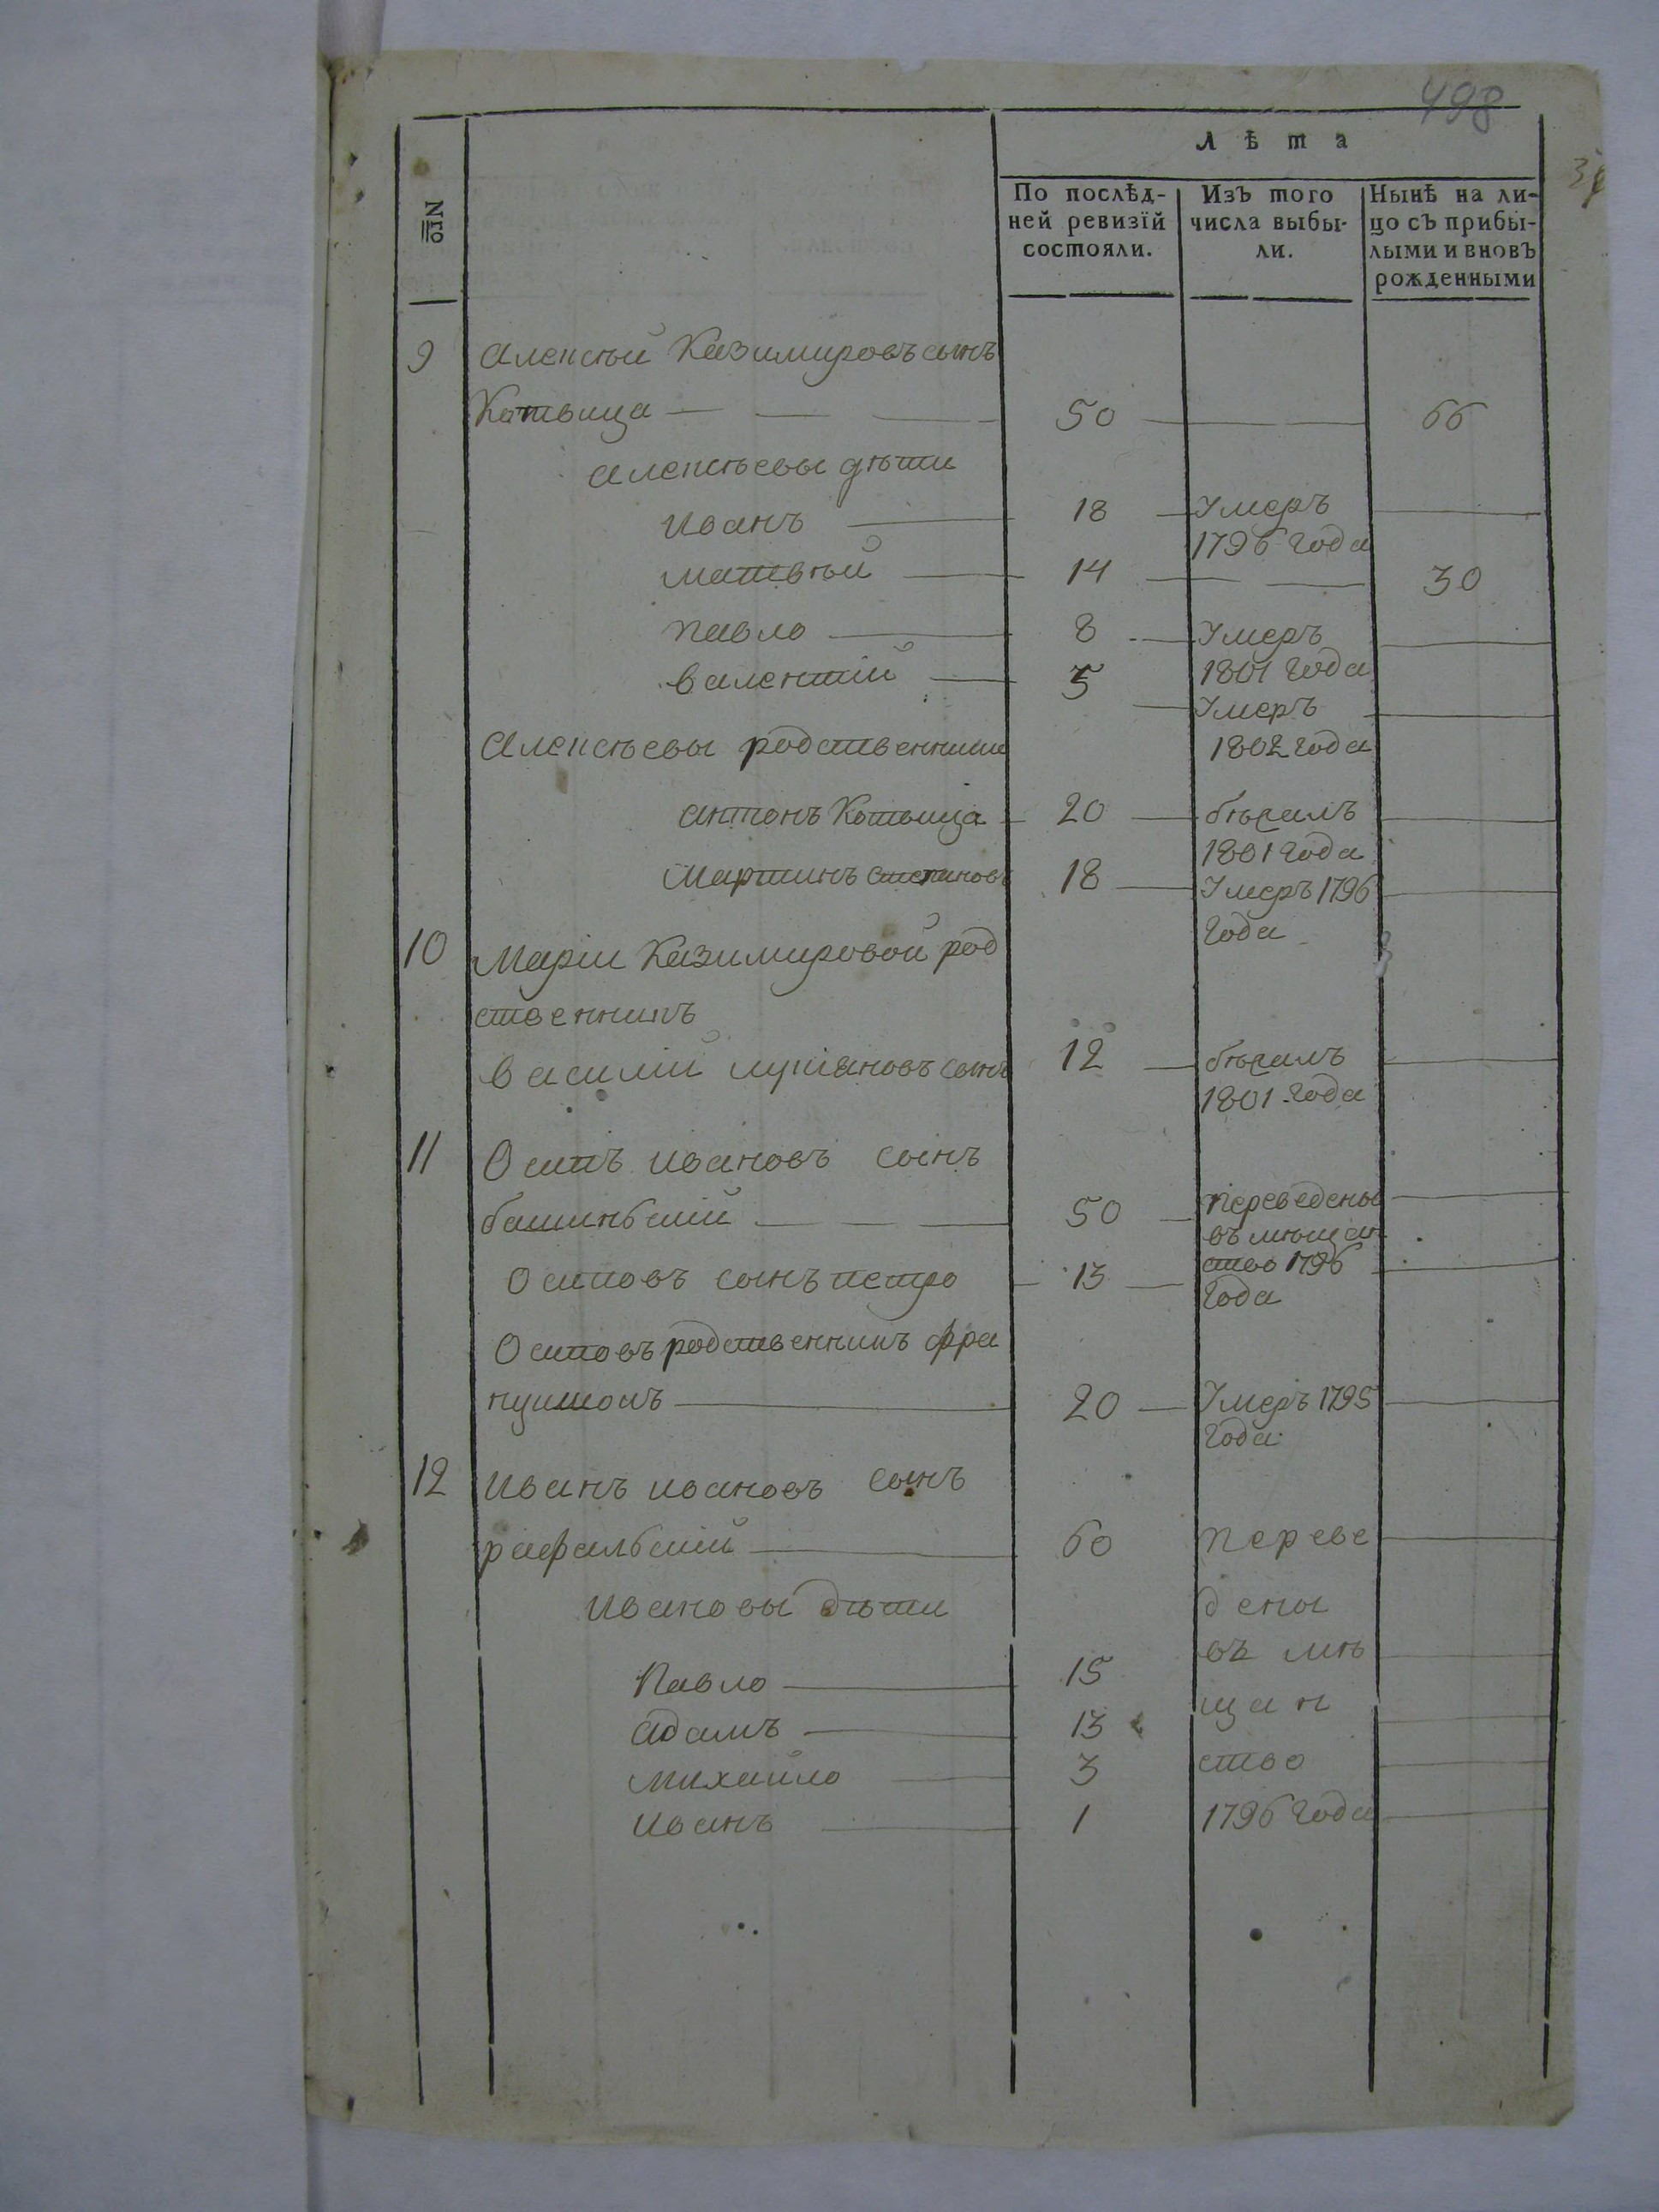 498
Лѣта
Nго
По послѣд-
ней ревизїй
состояли.
Изъ того
числа выбы-
ли.
Нынѣ на ли-
цо съ прибы-
лыми и вновь
рожденными
9 Алексѣй Казимировъ сынъ
Котвица 50 66
Алексѣевы дѣти
Иванъ 18 Умеръ
1796 года
Матвѣй 14 30
Павло 8 Умеръ
1801 года
Валентій 5 Умеръ
1802 года
Алексѣевы родственники
Антонъ Котвица 20 бѣжалъ
1801 года
Мартинъ Степановъ 18 Умеръ 1796
года
10 Маріи Казимировой род
ственникъ
Василій лукіановъ сынъ 12 бѣжалъ
1801 года
11 Осипъ Ивановъ сынъ
50 переведены
въ мѣщан
ство 1796
Осиповъ сынъ петро 13 года
Осиповъ родственникъ фра
нцишокъ 20 Умеръ 1795
года
12 Иванъ Ивановъ сынъ
рафальскій 60 переве
Ивановы дѣти дены
въ мѣ
Павло 15
щан
Адамъ 13
Михайло 3 ство
Иванъ 1 1796 года